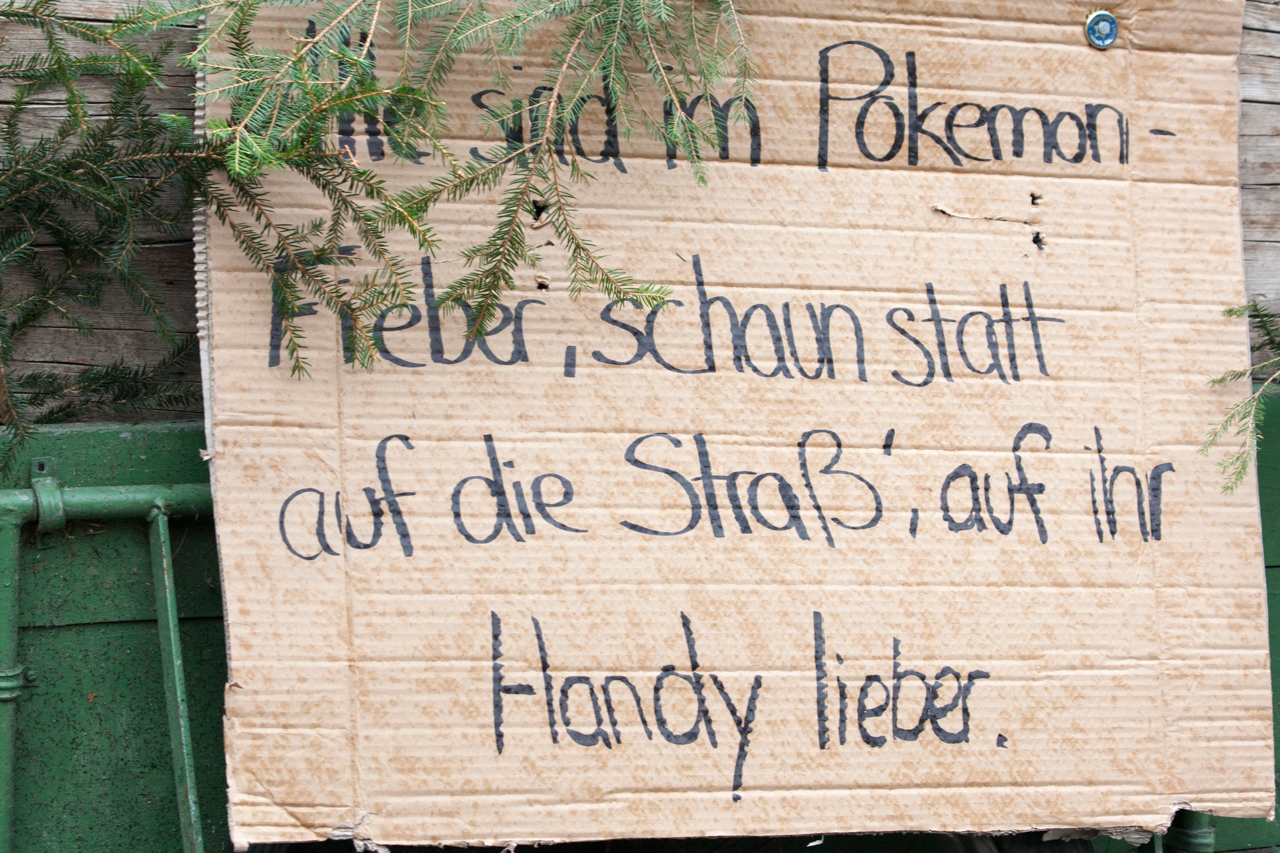 Alle sind im Pokemon-
Fieber, schaun statt
auf die Straß', auf ihr
Handy lieber.